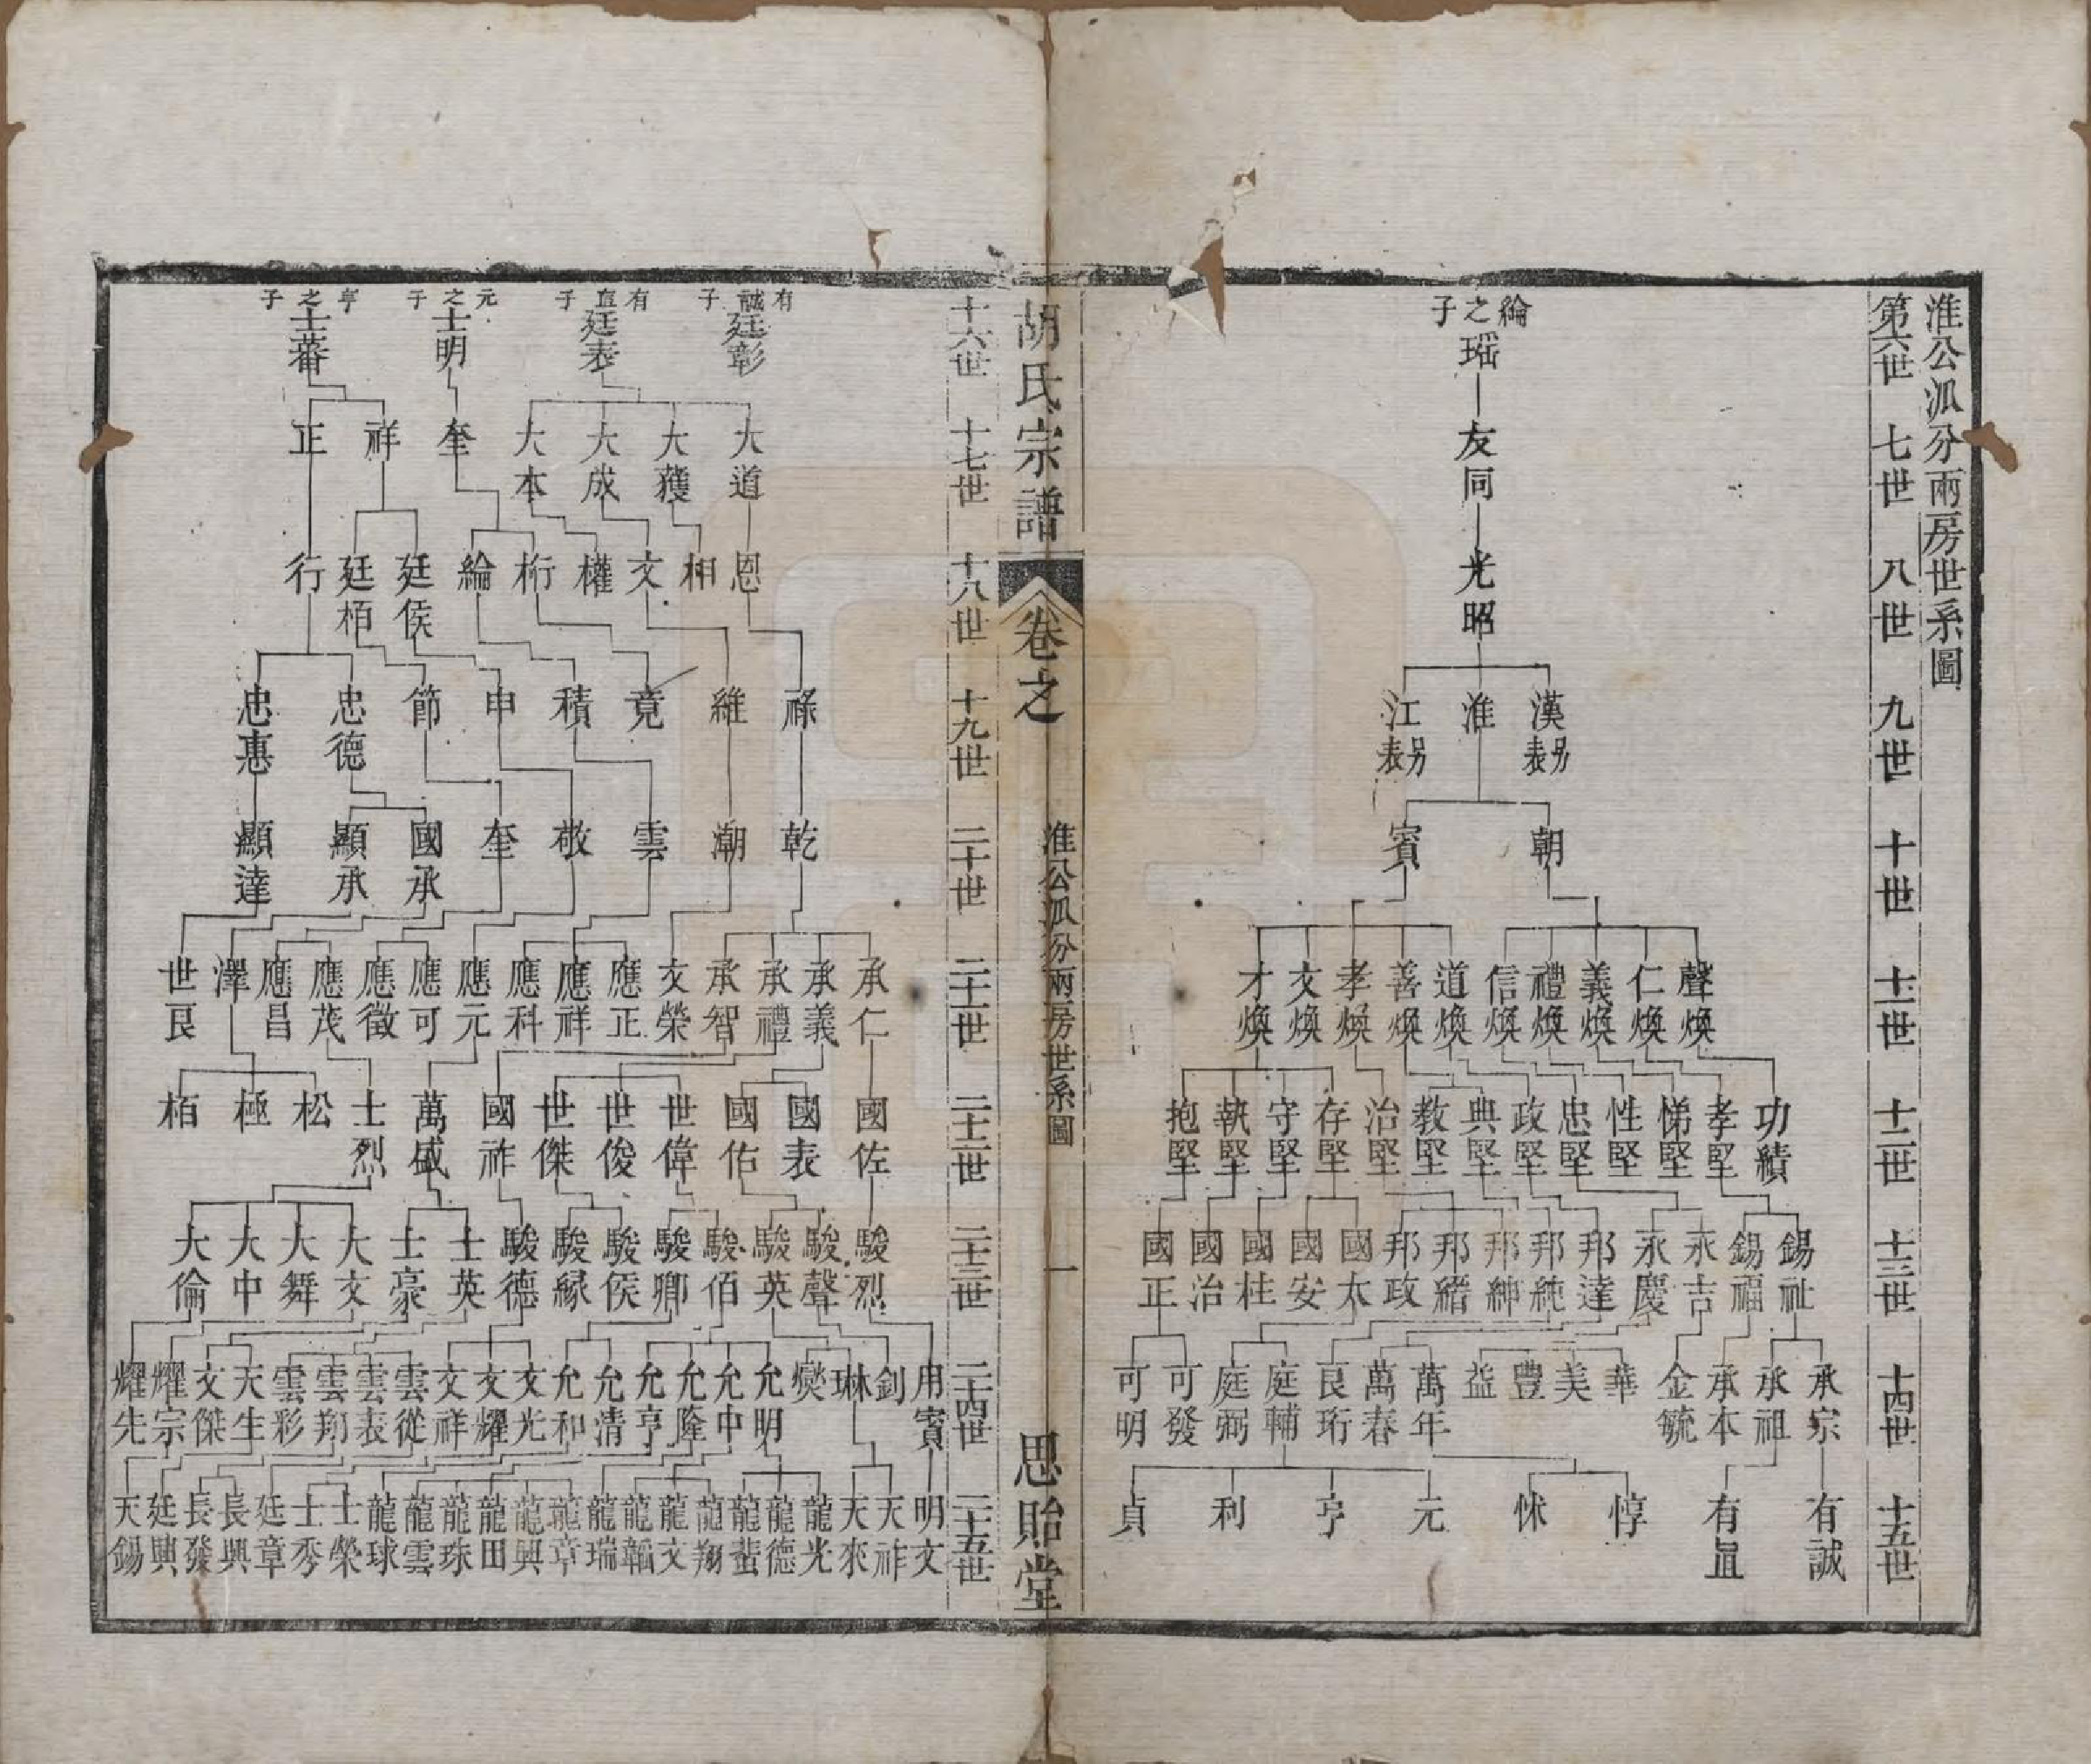 淮公派分兩房世系圖
第六世 七世 八世 九世 十世 十一世 十二世 十三世 十四世 十五世
綸之子 瑶 友同 光昭
漢 另表 淮 江 另表
朝 賓
聲煥 仁煥 義煥 禮煥 信煥 道煥 善煥 孝煥 文煥 才煥
功績 孝堅 悌堅 性堅 忠堅 政堅 典堅 教堅 治堅 存堅 守堅 執堅 抱堅
錫祉 錫福 永吉 永慶 邦達 邦純 邦紳 邦緒 邦政 國太 國安 國柱 國治 國正
承宗 承祖 承本 金毓 華 美 豐 益 萬年 萬春 艮珩 庭輔 庭弼 可發 可明
有誠 有直 惇 恘 元 亨 利 貞
胡氏宗譜 卷之 淮公派分兩房世系圖 一 思貽堂
十六世 十七世 十八世 十九世 二十世 二十一世 二十二世 二十三世 二十四世 二十五世
有誠子 廷彰 有直子 廷表 元之子 士明 亨之子 士蕃
大道 大護 大成 大本 奎 祥 正
恩 相 文 權 桁 綸 廷侯 廷栢 行
祿 維 竟 積 申 節 忠德 忠惠
乾 潮 雲 敬 奎 國承 顯承 顯達
承仁 承義 承禮 承智 文榮 應正 應祥 應科 應元 應可 應徵 應茂 應昌 澤 世艮
國佐 國表 國佑 世偉 世俊 世傑 國祚 萬盛 士烈 松 極 栢
駿烈 駿聲 駿英 駿佰 駿卿 駿侯 駿緣 駿德 士英 士豪 大文 大舞 大中 大倫
用賓 釗 琳 爕 允明 允中 允隆 允亨 允清 允和 文光 文耀 文祥 雲從 雲表 雲翔 雲彩 天生 文傑 耀宗 耀先
明文 天祚 天來 龍光 龍德 龍蜚 龍翔 龍文 龍韜 龍瑞 龍章 龍興 龍田 龍珠 龍雲 龍球 士榮 士秀 廷章 長興 長發 廷興 天錫